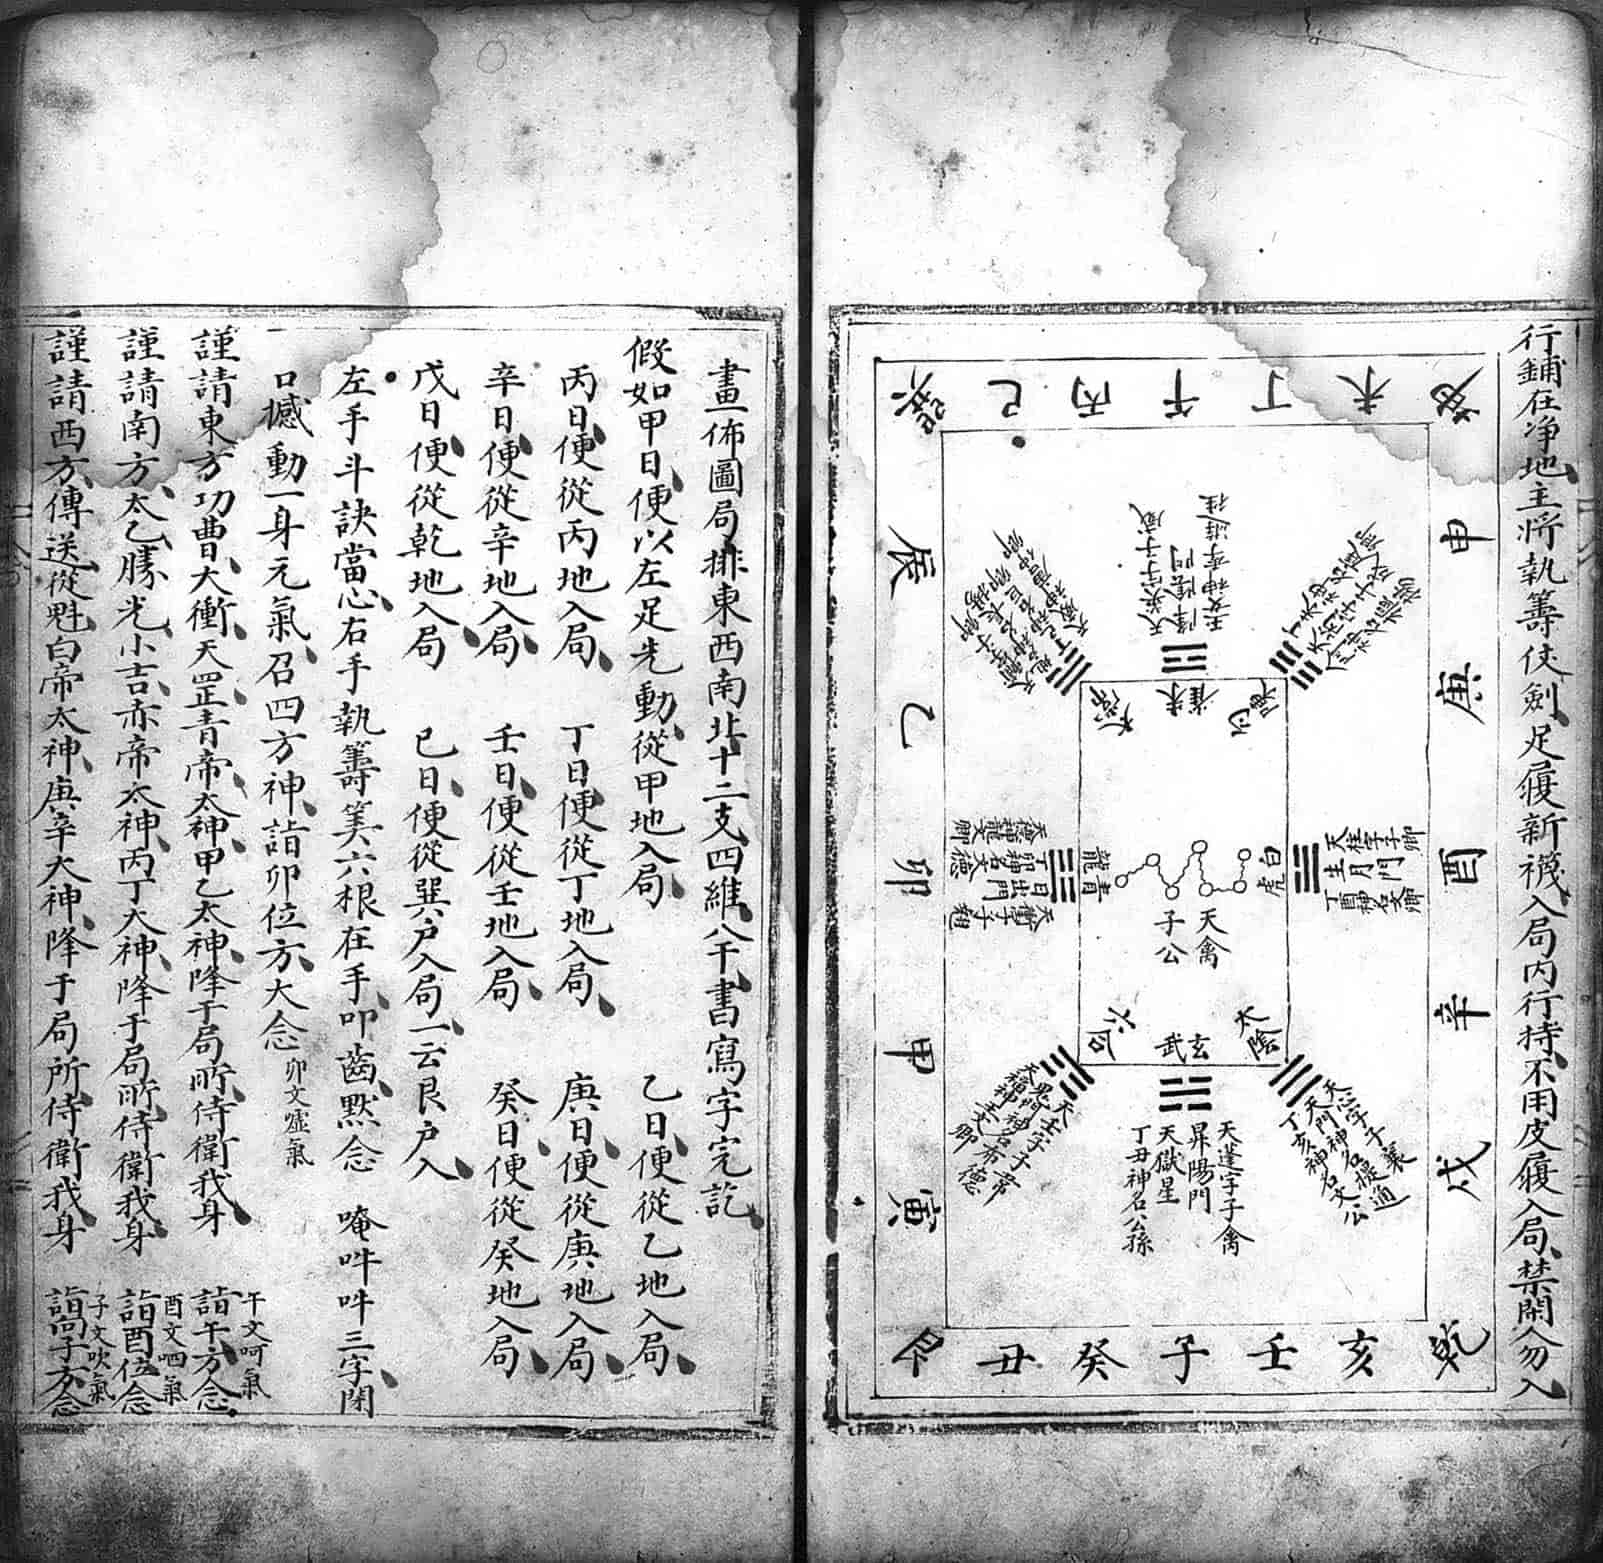 行鋪在净地主將執籌伎劍足履新襪入局内行持不用皮履入局禁閑人勿入
巽巳丙午丁未坤
申庚酉辛戌
乾亥壬子癸丑艮
寅甲卯乙辰
朱雀
白虎
太陰
玄武
六合
青龍
天禽
子公
天柱字子卿
生月門
丁酉神名文卿
天心字子襄
天門神名提通
丁亥神名文公
天蓬字子禽
昇陽門
天獄星
丁丑神名公孫
天任字子常
鬼門神名布德
天衝字子翹
日出門
丁卯神名文德
畫佈圖局排東西南北十二支四維八干書寫字完訖
假如甲日便以左足先動從甲地入局 乙日便從乙地入局
丙日便從丙地入局 丁日便從丁地入局 庚日便從庚地入局
辛日便從辛地入局 壬日便從壬地入局 癸日便從癸地入局
戊日便從乾地入局 已日便從巽户入局一云艮户入
左手斗訣當心右手執籌筭六根在手叩齒默念 唵吽吽三字閉
口撼動一身元氣召四方神詣卯位方大念 卯文噓氣
謹請東方功曹大衝天罡青帝太神甲乙太神降于局所侍衛我身 詣午方念 午文呵氣
謹請南方太乙勝光小吉赤帝太神丙丁大神降于局所侍衛我身 詣酉位念 酉文呬氣
謹請西方傳送從魁白帝太神庚辛大神降于局所侍衛我身 詣向子方念 子文吹氣